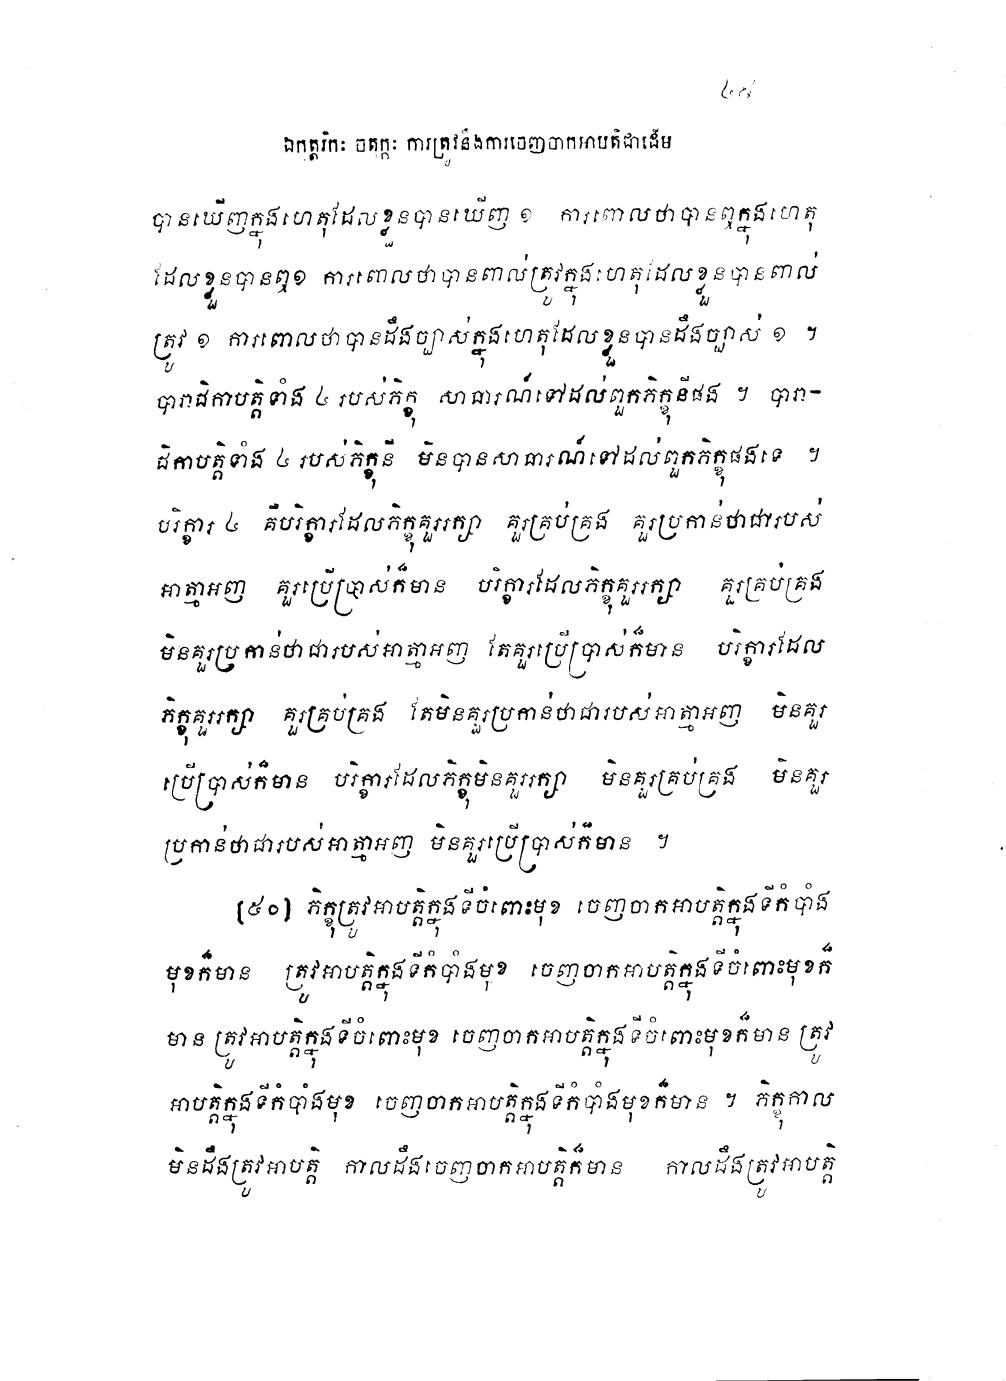 ៤៩
ឯកុត្តរិកៈ ចតុក្កៈ ការត្រូវនឹងការចេញចាកអាបតិដាដើម
បានឃើញក្នុងហេតុដែលខ្លួនបានឃើញ ១ ការពោលថាបានឮក្នុងហេតុ
ដែលខ្លួនបានឮ១ ការពោលថាបានពាល់ត្រូវក្នុងហេតុដែលខ្លួនបានពាល់
ត្រូវ ១ ការពោលថាបានដឹងច្បាស់ក្នុងហេតុដែលខ្លួនបានដឹងច្បាស់ ១ ។
បារាជិកាបត្តិទាំង ៤ របស់ភិក្ខុ សាធារណ៍ទៅដល់ពួកភិក្ខុនីផង ។ បារា-
ជិកាបត្តិទាំង ៤ របស់ភិក្ខុនី មិនបានសាធារណ៍ទៅដល់ពួកភិក្ខុផងទេ ។
បរិក្ខារ ៤ គឺបរិក្ខារដែលភិក្ខុគួររក្សា គួរគ្រប់គ្រង គួរប្រកាន់ថាជារបស់
អាត្មាអញ គួរប្រើប្រាស់ក៏មាន បរិក្ខារដែលភិក្ខុគួររក្សា គួរគ្រប់គ្រង
មិនគួរប្រកាន់ថាជារបស់អាត្មាអញ តែគួរប្រើប្រាស់ក៏មាន បរិក្ខារដែល
ភិក្ខុគួររក្សា គួរគ្រប់គ្រង តែមិនគួរប្រកាន់ថាជារបស់អាត្មាអញ មិនគួរ
ប្រើប្រាស់ក៏មាន បរិក្ខារដែលភិក្ខុមិនគួររក្សា មិនគួរគ្រប់គ្រង មិនគួរ
ប្រកាន់ថាជារបស់អាត្មាអញ មិនគួរប្រើប្រាស់ក៏មាន ។
[៥០] ភិក្ខុត្រូវអាបត្តិក្នុងទីចំពោះមុខ ចេញចាកអាបត្តិក្នុងទីកំបាំង
មុខក៏មាន ត្រូវអាបត្តិក្នុងទីកំបាំងមុខ ចេញចាកអាបត្តិក្នុងទីចំពោះមុខក៏
មាន ត្រូវអាបត្តិក្នុងទីចំពោះមុខ ចេញចាកអាបត្តិក្នុងទីចំពោះមុខក៏មាន ត្រូវ
អាបត្តិក្នុងទីកំបាំងមុខ ចេញចាកអាបត្តិក្នុងទីកំបាំងមុខក៏មាន ។ ភិក្ខុកាល
មិនដឹងត្រូវអាបត្តិ កាលដឹងចេញចាកអាបត្តិក៏មាន កាលដឹងត្រូវអាបត្តិ